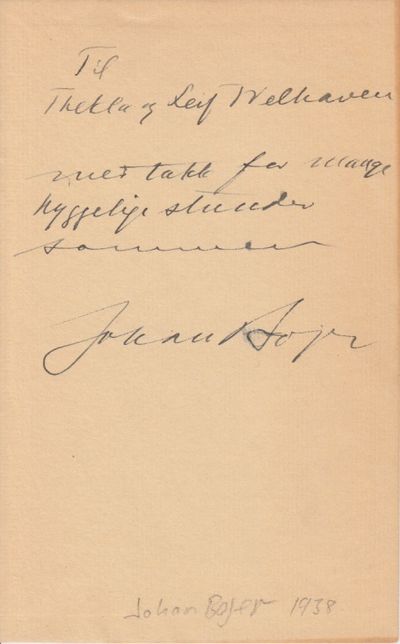 Til
Thekla og Leif Welhaven
med takk for mange
hyggelige stunder
sammen
Johan Bojer
Johan Bojer 1938